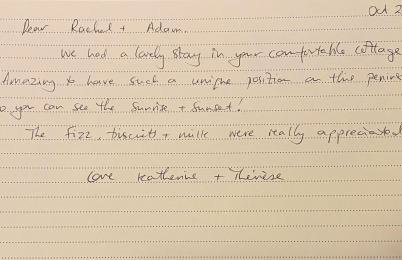 Oct 2
Dear Rachel + Adam.
We had a lovely stay in your comfortable cottage
Amazing to have such a unique position on this penins
so you can see the sunrise + sunset!
The fizz, biscuits + milk were really appreciated
Love Katherine + Thérèse